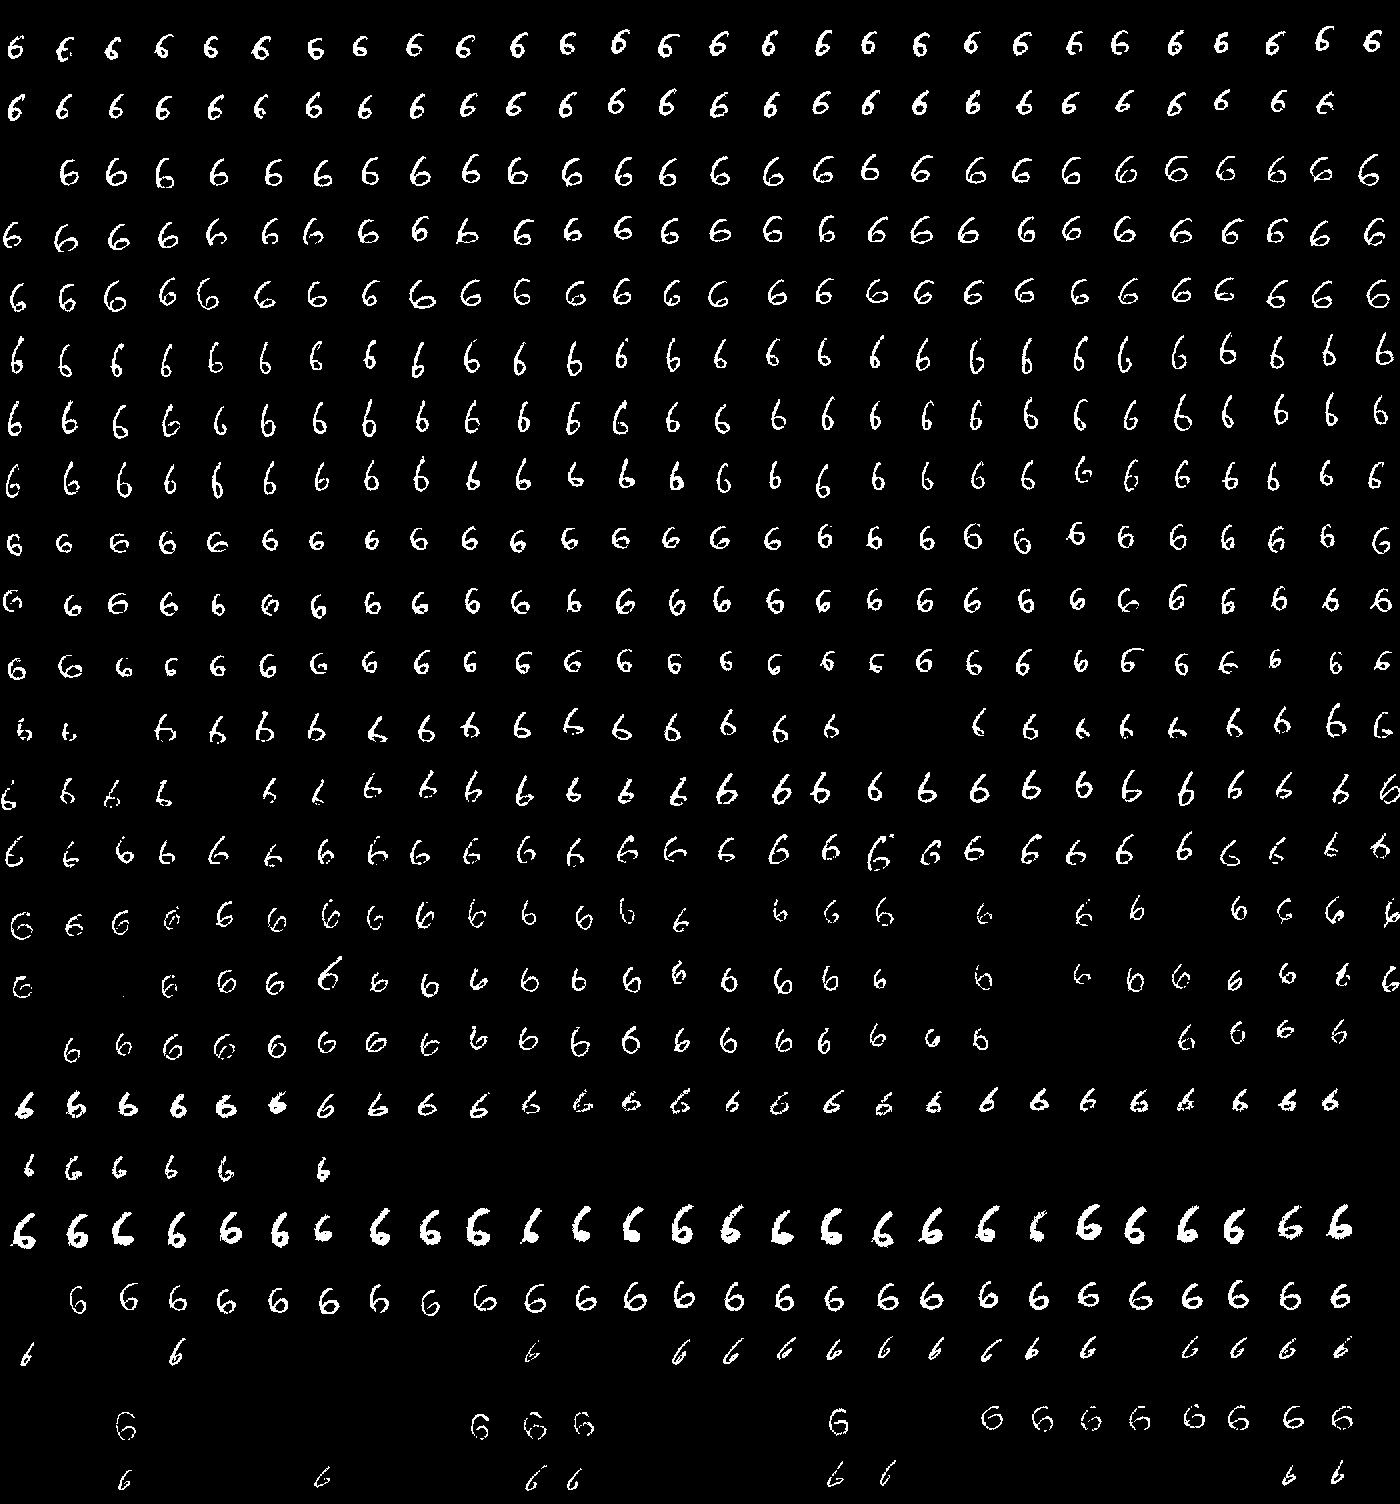 6 6 6 6 6 6 6 6 6 6 6 6 6 6 6 6 6 6 6 6 6 6 6 6 6 6 6 6
6 6 6 6 6 6 6 6 6 6 6 6 6 6 6 6 6 6 6 6 6 6 6 6 6 6 6
6 6 6 6 6 6 6 6 6 6 6 6 6 6 6 6 6 6 6 6 6 6 6 6 6 6 6
6 6 6 6 6 6 6 6 6 6 6 6 6 6 6 6 6 6 6 6 6 6 6 6 6 6 6 6
6 6 6 6 6 6 6 6 6 6 6 6 6 6 6 6 6 6 6 6 6 6 6 6 6 6 6 6
6 6 6 6 6 6 6 6 6 6 6 6 6 6 6 6 6 6 6 6 6 6 6 6 6 6 6 6
6 6 6 6 6 6 6 6 6 6 6 6 6 6 6 6 6 6 6 6 6 6 6 6 6 6 6 6
6 6 6 6 6 6 6 6 6 6 6 6 6 6 6 6 6 6 6 6 6 6 6 6 6 6 6 6
6 6 6 6 6 6 6 6 6 6 6 6 6 6 6 6 6 6 6 6 6 6 6 6 6 6 6 6
6 6 6 6 6 6 6 6 6 6 6 6 6 6 6 6 6 6 6 6 6 6 6 6 6 6 6 6
6 6 6 6 6 6 6 6 6 6 6 6 6 6 6 6 6 6 6 6 6 6 6 6 6 6 6 6
6 6 6 6 6 6 6 6 6 6 6 6 6 6 6 6 6 6 6 6 6 6 6 6 6
6 6 6 6 6 6 6 6 6 6 6 6 6 6 6 6 6 6 6 6 6 6 6 6 6 6 6
6 6 6 6 6 6 6 6 6 6 6 6 6 6 6 6 6 6 6 6 6 6 6 6 6 6 6 6
6 6 6 6 6 6 6 6 6 6 6 6 6 6 6 6 6 6 6 6 6 6 6 6
6 6 6 6 6 6 6 6 6 6 6 6 6 6 6 6 6 6 6 6 6 6 6 6
6 6 6 6 6 6 6 6 6 6 6 6 6 6 6 6 6 6 6 6 6 6 6
6 6 6 6 6 6 6 6 6 6 6 6 6 6 6 6 6 6 6 6 6 6 6 6 6 6 6
6 6 6 6 6 6
6 6 6 6 6 6 6 6 6 6 6 6 6 6 6 6 6 6 6 6 6 6 6 6 6 6 6
6 6 6 6 6 6 6 6 6 6 6 6 6 6 6 6 6 6 6 6 6 6 6 6 6 6
6 6 6 6 6 6 6 6 6 6 6 6 6 6 6 6
6 6 6 6 6 6 6 6 6 6 6 6 6
6 6 6 6 6 6 6 6